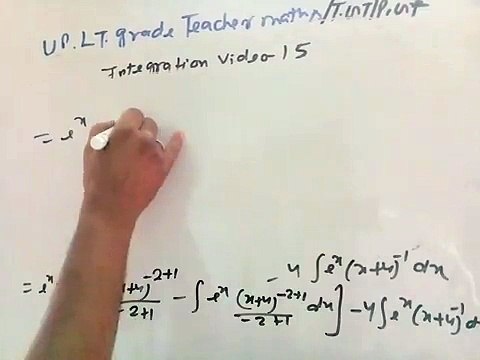 UP.LT.grade Teacher maths/T.GT/P.GT
Integration Video-15
= e^x
- 4 ∫e^x (x+4)^-1 dx
= e^x +4)^-2+1 / -2+1 - ∫ e^x (x+4)^-2+1 / -2+1 dx] - 4∫e^x (x+4)^-1 d